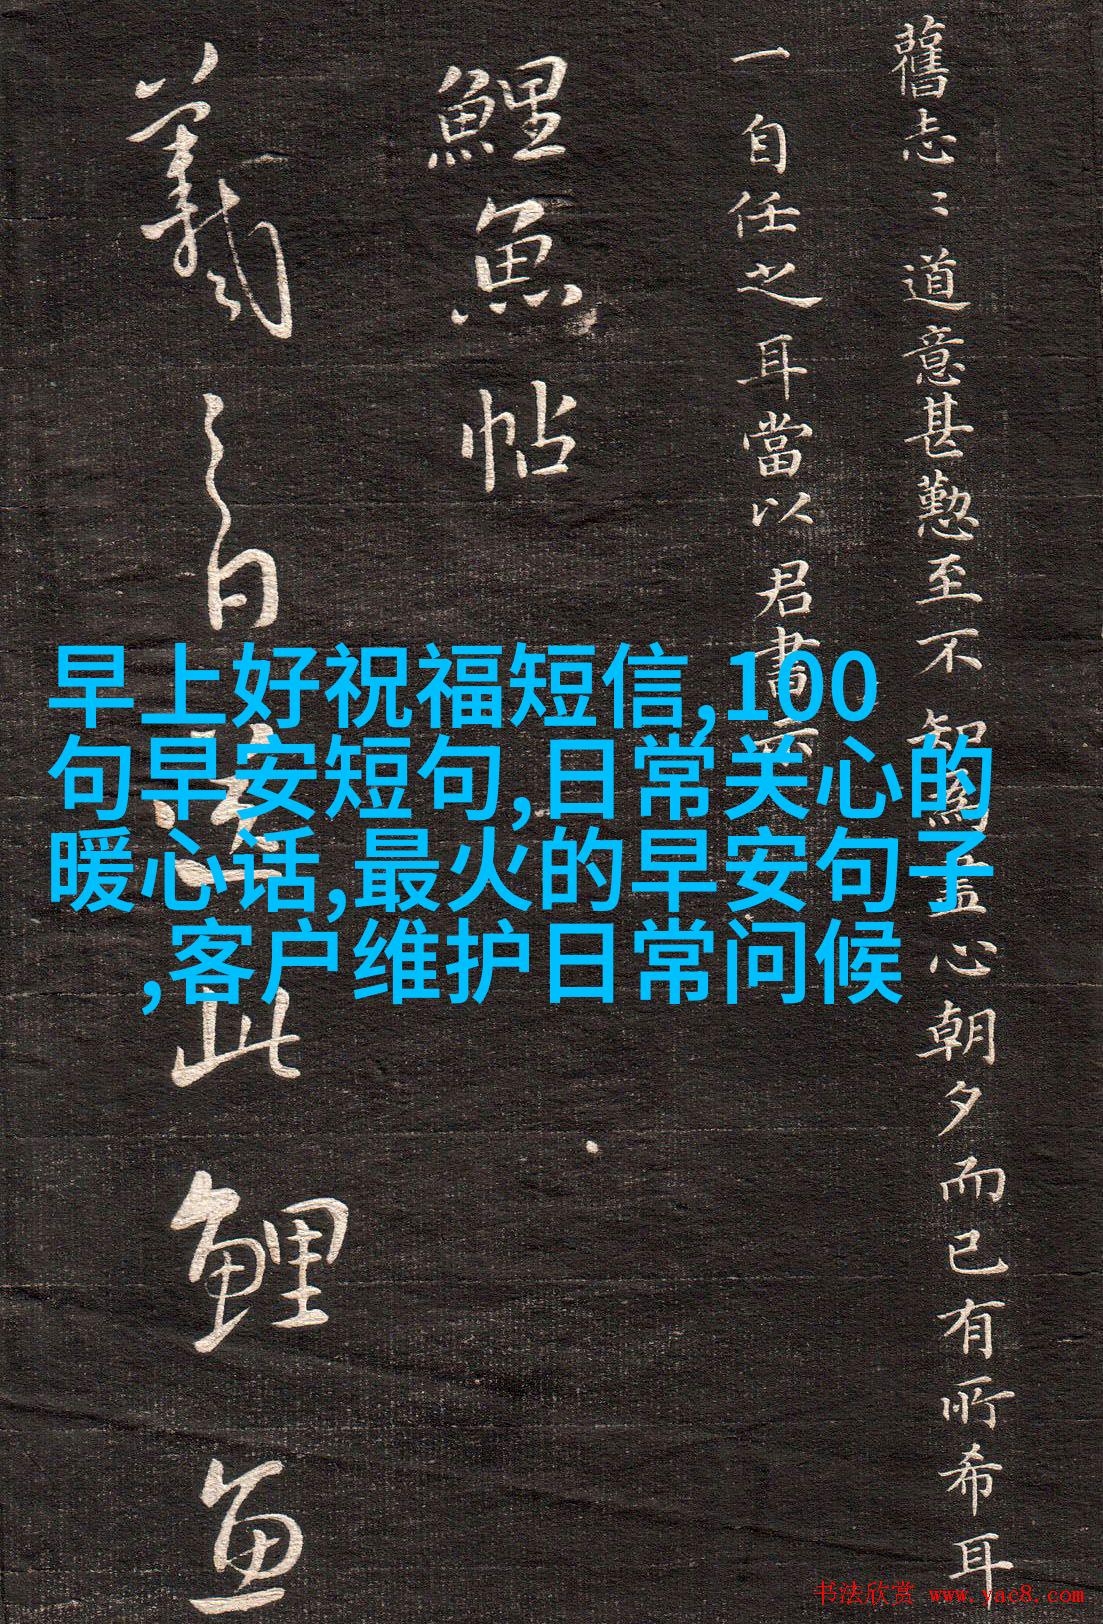 舊志〻道意甚懃至不
盡心朝夕而已有所希耳
一自任之耳當以君書示
鯉魚帖
羲之白送此鯉魚
早上好祝福短信,100
句早安短句,日常关心的
暖心话,最火的早安句子
,客户维护日常问候
书法欣赏 www.yac8.com